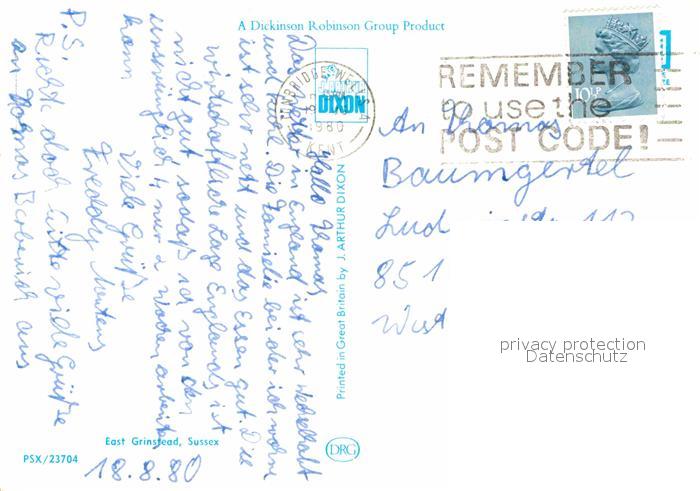 A Dickinson Robinson Group Product
Hallo Thomas
Das in England ist sehr wechselhaft
und . Die Familie bei der ich wohne
ist sehr nett und das Essen gut. Die
wirtschaftliche Lage Englands ist
nicht gut sodaß ich von den
ursprünglich 4 nur 2 Wochen arbeiten
kann.
Viele Grüße
Freddy
P.S.
Richte doch bitte viele Grüße
an Thomas aus
East Grinstead, Sussex
PSX/23704
18.8.80
Printed in Great Britain by J. ARTHUR DIXON
DRG
J ARTHUR
DIXON
TUNBRIDGE WELLS
1980
KENT
REMEMBER
to use the
POST CODE!
10½P
An Thomas
Baumgertel
Lud 112
851
West
privacy protection
Datenschutz